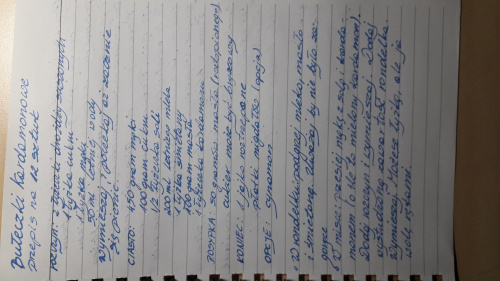 Bułeczki kardamonowe
przepis na 12 sztuk
ROZCZYN: 2 łyżeczki drożdży suszonych
1 łyżka cukru
1 łyżka mąki
50 ml letniej wody
wymieszaj i poczekaj aż zacznie
się pienić
CIASTO: 450 gram mąki
100 gram cukru
1/2 łyżeczki soli
200 ml letniego mleka
1 łyżka śmietany
100 gram masła
1 łyżeczka kardamonu
POSYPKA 50 gramów masła (roztopionego)
cukier może być brązowy
KONIEC: 1 jajko roztrzepane
płatki migdałów (opcja)
OPCJE: cynamon
• W rondelku podgrzej mleko, masło
i śmietanę. Uważaj by nie było za
gorące
• W misce przesiej mąkę z solą i karda-
monem (o ile to mielony kardamon).
Dodaj rozczyn i wymieszaj. Dodaj
wystudzoną zawartość rondelka.
Wymieszaj. Możesz łyżką, ale ja
wolę rękami.